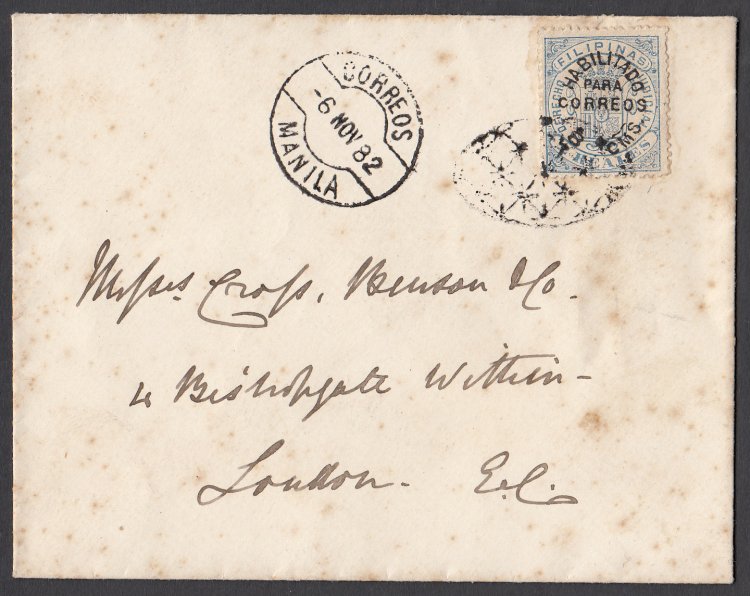 CORREOS
-6 NOV 82
MANILA
FILIPINAS
HABILITADO
PARA
CORREOS
CMS.
REALES
Messrs. Cross, Benson & Co.
4 Bishopsgate Within-
London- E.C.